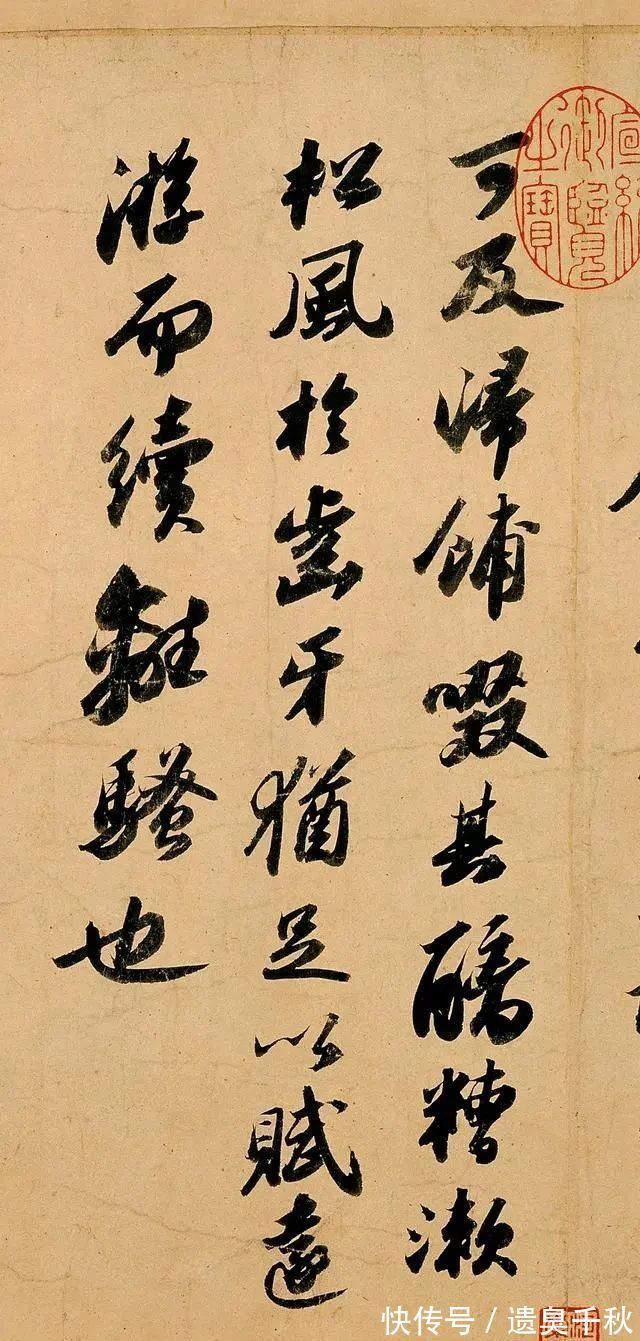 可及歸餔啜其醨糟漱
松風於齒牙猶足以賦遠
游而續離騷也
宣統御覽之寶
快传号/遗臭千秋